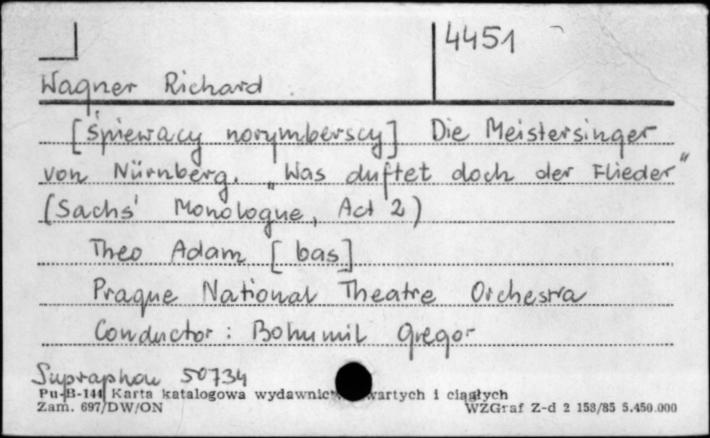 4451
Wagner Richard
[Śpiewacy norymberscy] Die Meistersinger
von Nürnberg. „Was duftet doch der Flieder"
(Sachs' Monologue, Act 2)
Theo Adam [bas]
Prague National Theatre Orchestra
Conductor: Bohumil Gregor
Supraphon 50734
Pu-B-144 Karta katalogowa wydawnic wartych i ciągłych
Zam. 697/DW/ON WZGraf Z-d 2 153/85 5.450.000